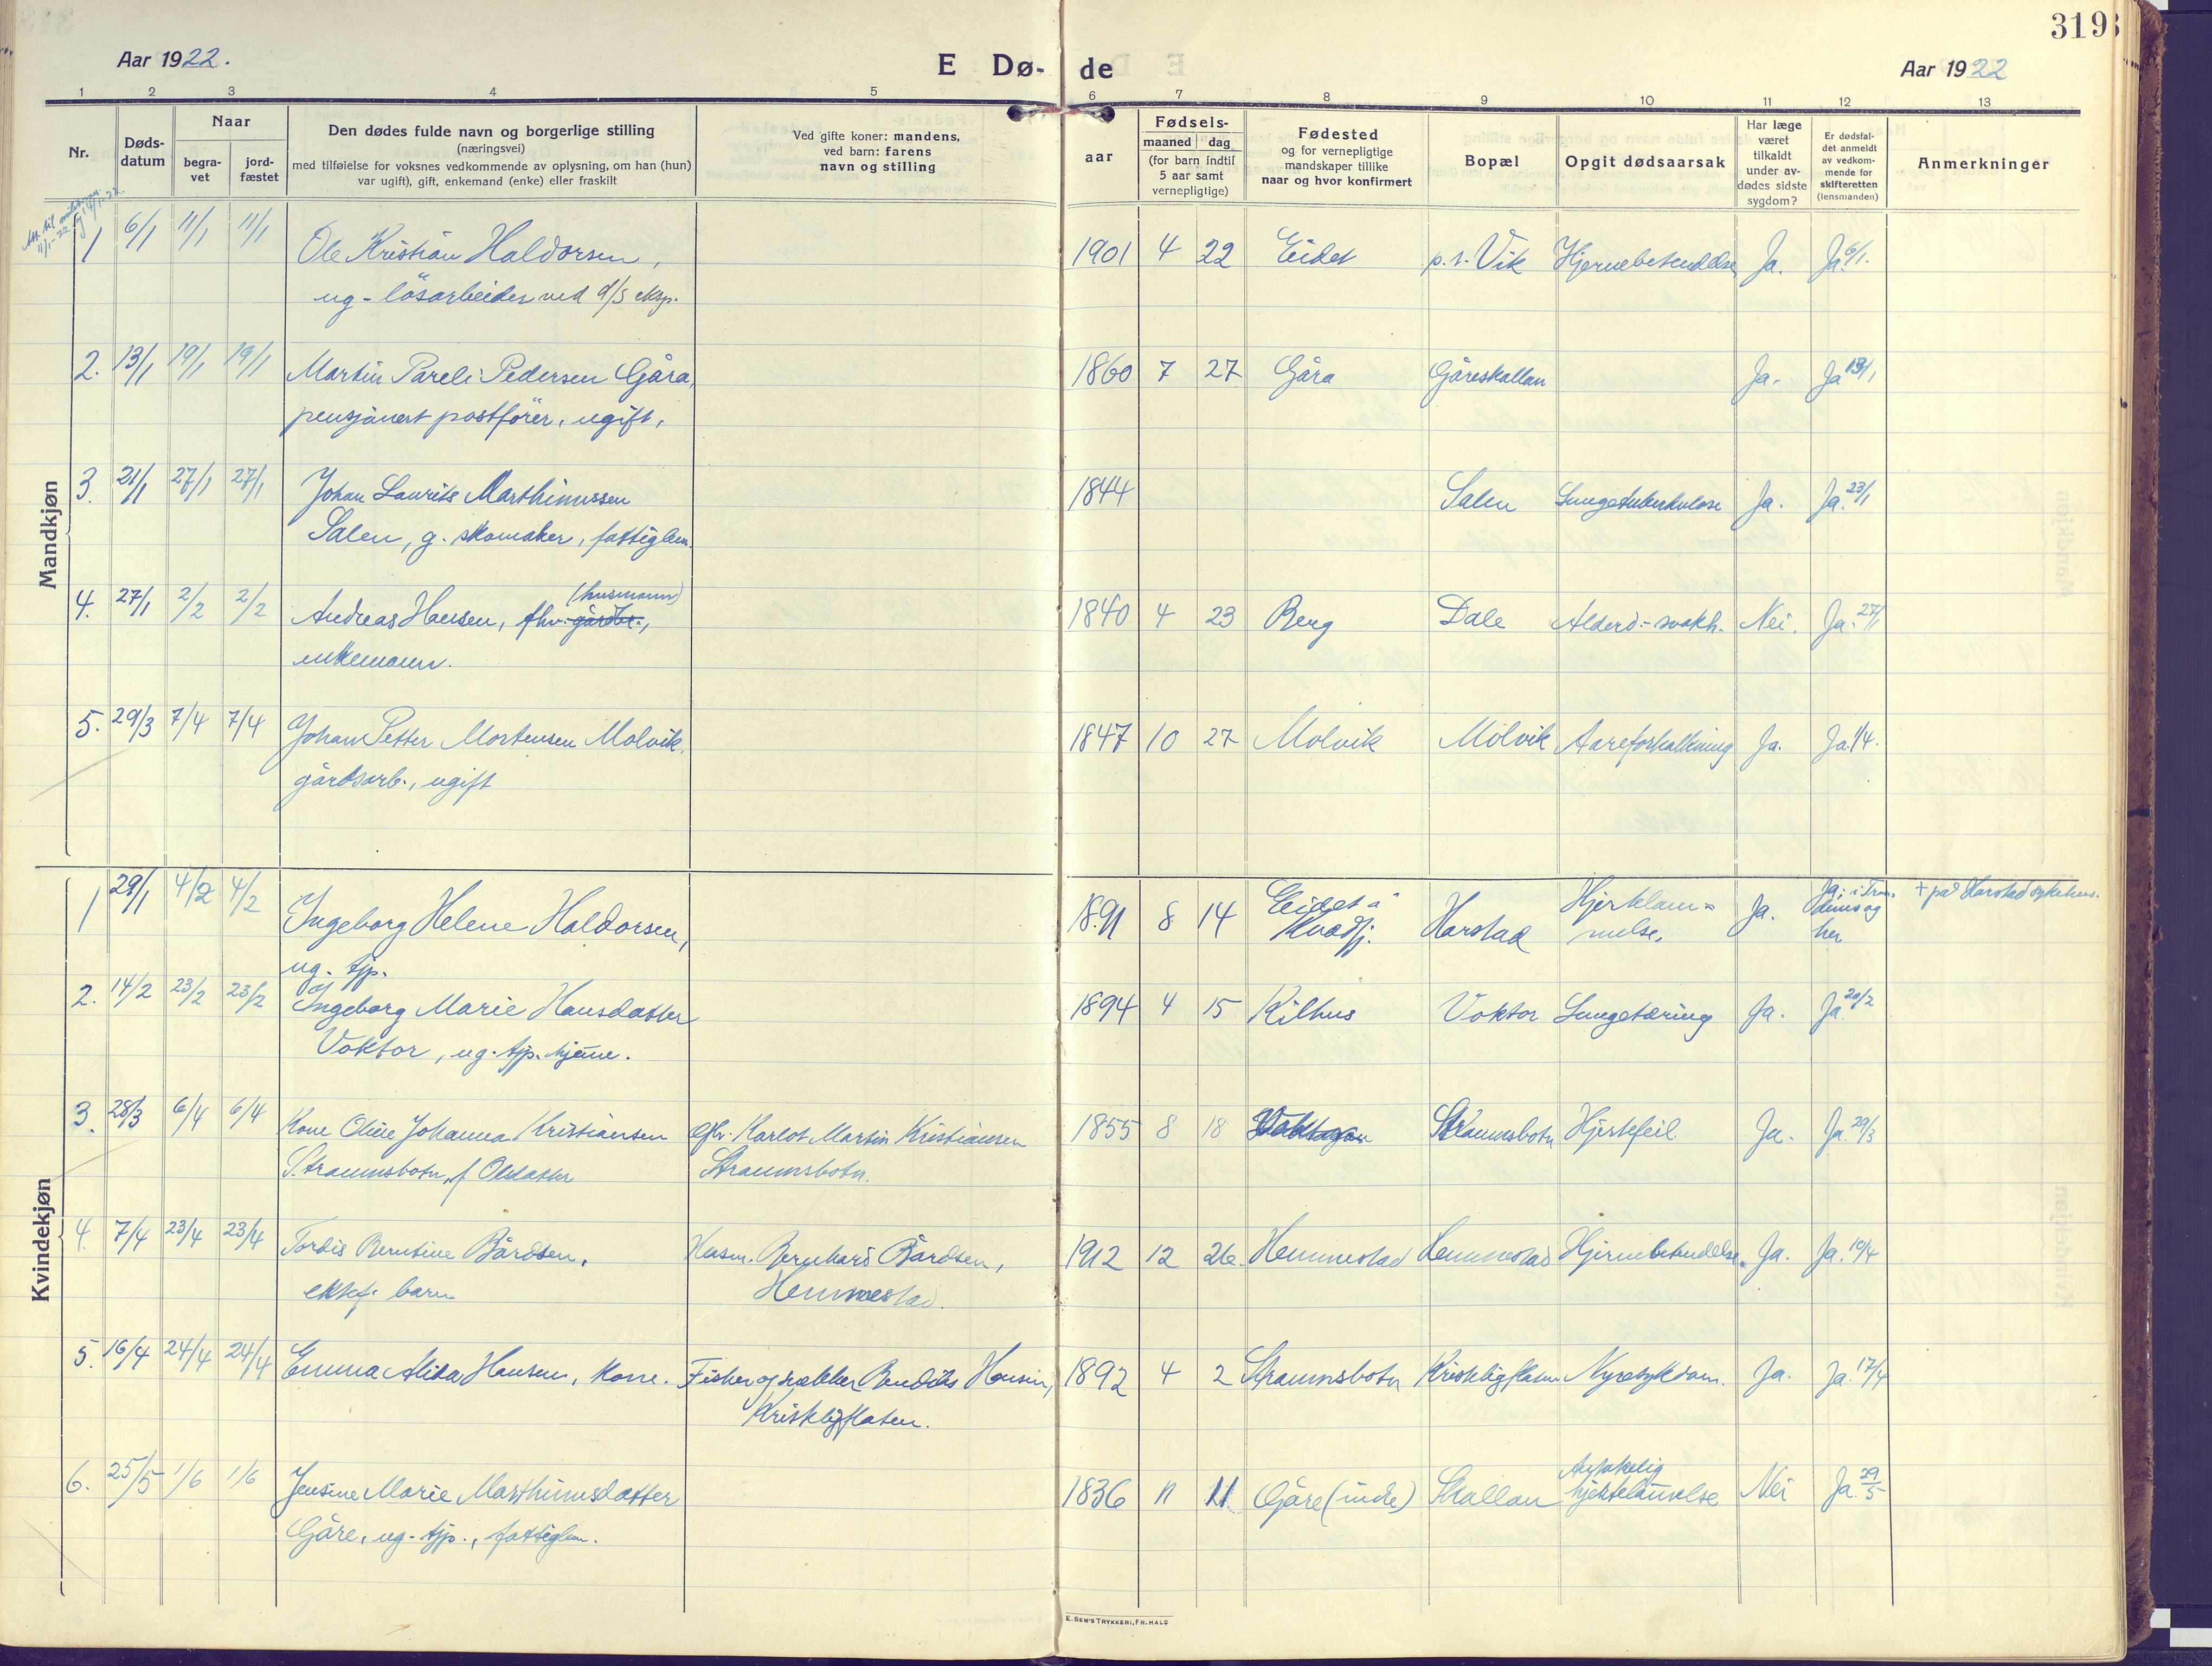 319
Aar 1922.
E Dø-
de
Aar 1922
1 2 3 4 5 6 7 8 9 10 11 12 13
Nr.
Døds-
datum
Naar
begra-
vet
jord-
fæstet
Den dødes fulde navn og borgerlige stilling
(næringsvei)
med tilføielse for voksnes vedkommende av oplysning, om han (hun)
var ugift), gift, enkemand (enke) eller fraskilt
Ved gifte koner: mandens,
ved barn: farens
navn og stilling
aar
Fødsels-
maaned dag
(for barn indtil
5 aar samt
vernepligtige)
Fødested
og for vernepligtige
mandskaper tillike
naar og hvor konfirmert
Bopæl
Opgit dødsaarsak
Har læge
været
tilkaldt
under av-
dødes sidste
sygdom?
Er dødsfal-
det anmeldt
av vedkom-
mende for
skifteretten
(lensmanden)
Anmerkninger
Mandkjøn
1 6/1 11/1 11/1 Ole Kristian Haldorsen, 1901 4 22 Eidet p.t. Vik Hjernebetendelse Ja. Ja 6/1.
ug - løsarbeider ved d/s eksp.
2. 13/1 19/1 19/1 Martin Pareli Pedersen Gåra, 1860 7 27 Gåra Gåreskallan Ja. Ja 13/1
pensjonert postfører, ugift,
3. 21/1 27/1 27/1 Johan Laurits Marthinussen 1844 Salen Lungetuberkulose Ja. Ja. 23/1
Salen, g. skomaker, fattiglem.
(husmann)
4. 27/1 2/2 2/2 Andreas Hansen, fhv. gårdbr., 1840 4 23 Berg Dale Alderd.-svakh. Nei. Ja. 27/1
enkemann.
5. 29/3 7/4 7/4 Johan Petter Mortensen Molvik, 1847 10 27 Molvik Molvik Aareforkalkning Ja. Ja 1/4.
gårdsarb., ugift
Kvindekjøn
1 29/1 4/2 4/2 Ingeborg Helene Haldorsen, 1891 8 14 Eidet i Kvædfj. Harstad Hjertelam- Ja. Ja, i Tron- + på Harstad sykehus.
ug. tjp. melse, denes og
her
2. 14/2 23/2 23/2 Ingeborg Marie Hansdatter 1894 4 15 Kilhus Voktor Lungetæring Ja. Ja 20/2
Voktor, ug. tjp. hjeme.
3. 28/3 6/4 6/4 Kone Oline Johanna Kristiansen Gbr. Karlot Martin Kristiansen 1855 8 18 Straumsbotn Hjertefeil Ja. Ja. 29/3
Straumsbotn, f. Olsdatter Straumsbotn.
4. 7/4 23/4 23/4 Tordis Berntine Bårdsen, Husm. Bernhard Bårdsen, 1912 12 26. Hemmestad Hemmestad Hjernebetendelse. Ja. Ja. 10/4
ektef. barn Hemmestad.
5. 16/4 24/4 24/4 Emma Alida Hansen, kone. Fisker og Bendiks Hansen, 1892 4 2 Straumsbotn Nyresykdom. Ja. Ja. 17/4
6. 25/5 1/6 1/6 Jensine Marie Marthinusdatter 1836 11 11. Gåre (indre) Skallan Antakelig hjertelammelse Nei Ja. 29/5
Gåre, ug. tjp., fattiglem.
E. SEM'S TRYKKERI, FR.HALD